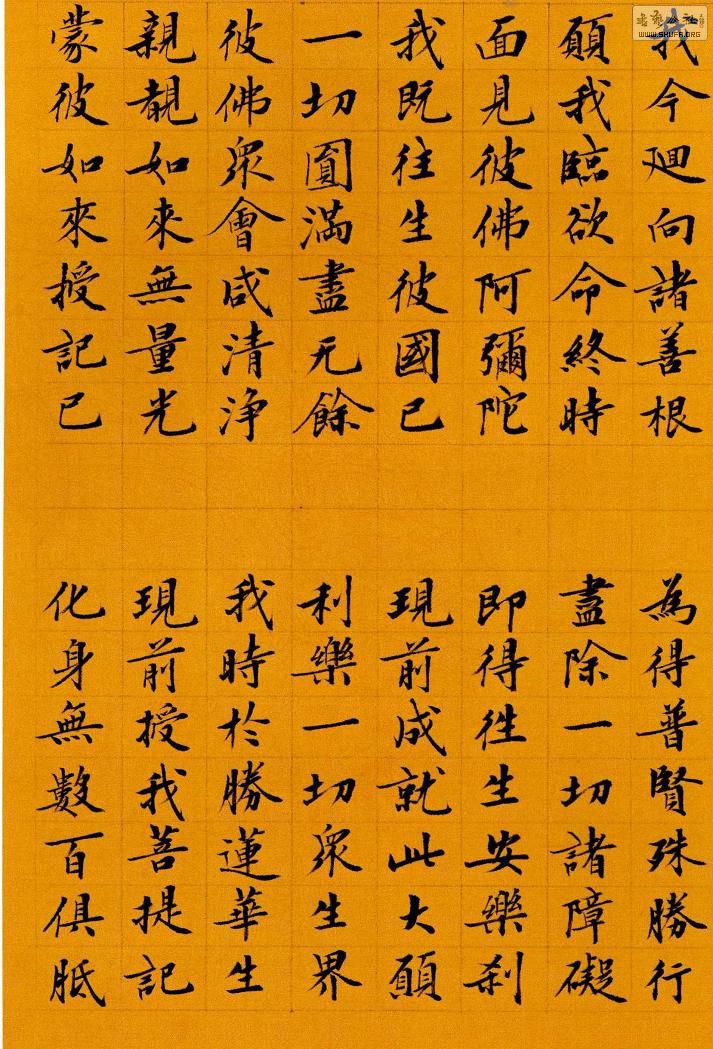 我今廻向諸善根 為得普賢殊勝行
願我臨欲命終時 盡除一切諸障礙
面見彼佛阿彌陀 即得往生安樂刹
我既往生彼國已 現前成就此大願
一切圓滿盡无餘 利樂一切眾生界
彼佛眾會咸清淨 我時於勝蓮華生
親覩如來無量光 現前授我菩提記
蒙彼如來授記已 化身無數百俱胝
WWW.SHUFA.ORG